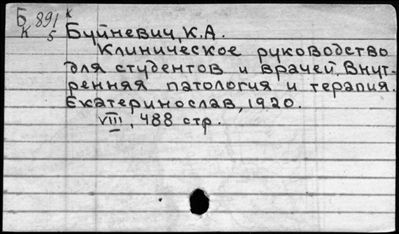 Б 891 к
К 5
Буйневич, К.А.
Клиническое руководство
для студентов и врачей. Внут-
ренняя патология и терапия.
Екатеринослав, 1920.
VIII, 488 стр.